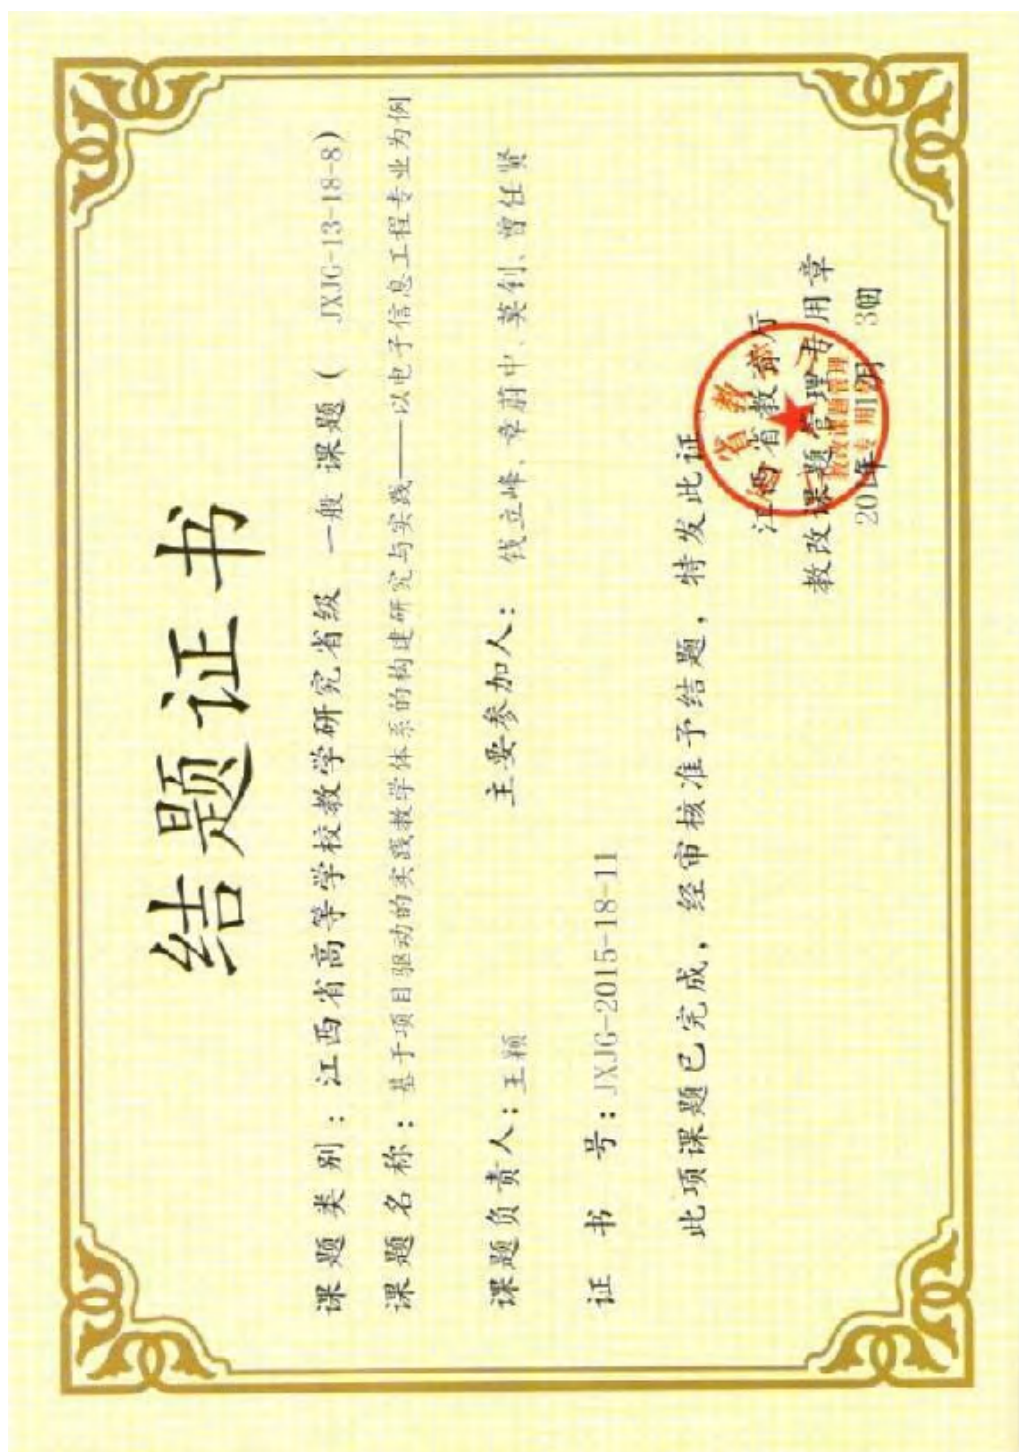 结题证书
课题类别：江西省高等学校教学研究省级 一般 课题（ JXJG-13-18-8）
课题名称：基于项目驱动的实践教学体系的构建研究与实践——以电子信息工程专业为例
课题负责人：王颖 主要参加人：钱立峰、章前中、莫钊、曾任贤
证 书 号：JXJG-2015-18-11
此项课题已完成，经审核准予结题，特发此证
江西省教育厅
教改课题管理专用章